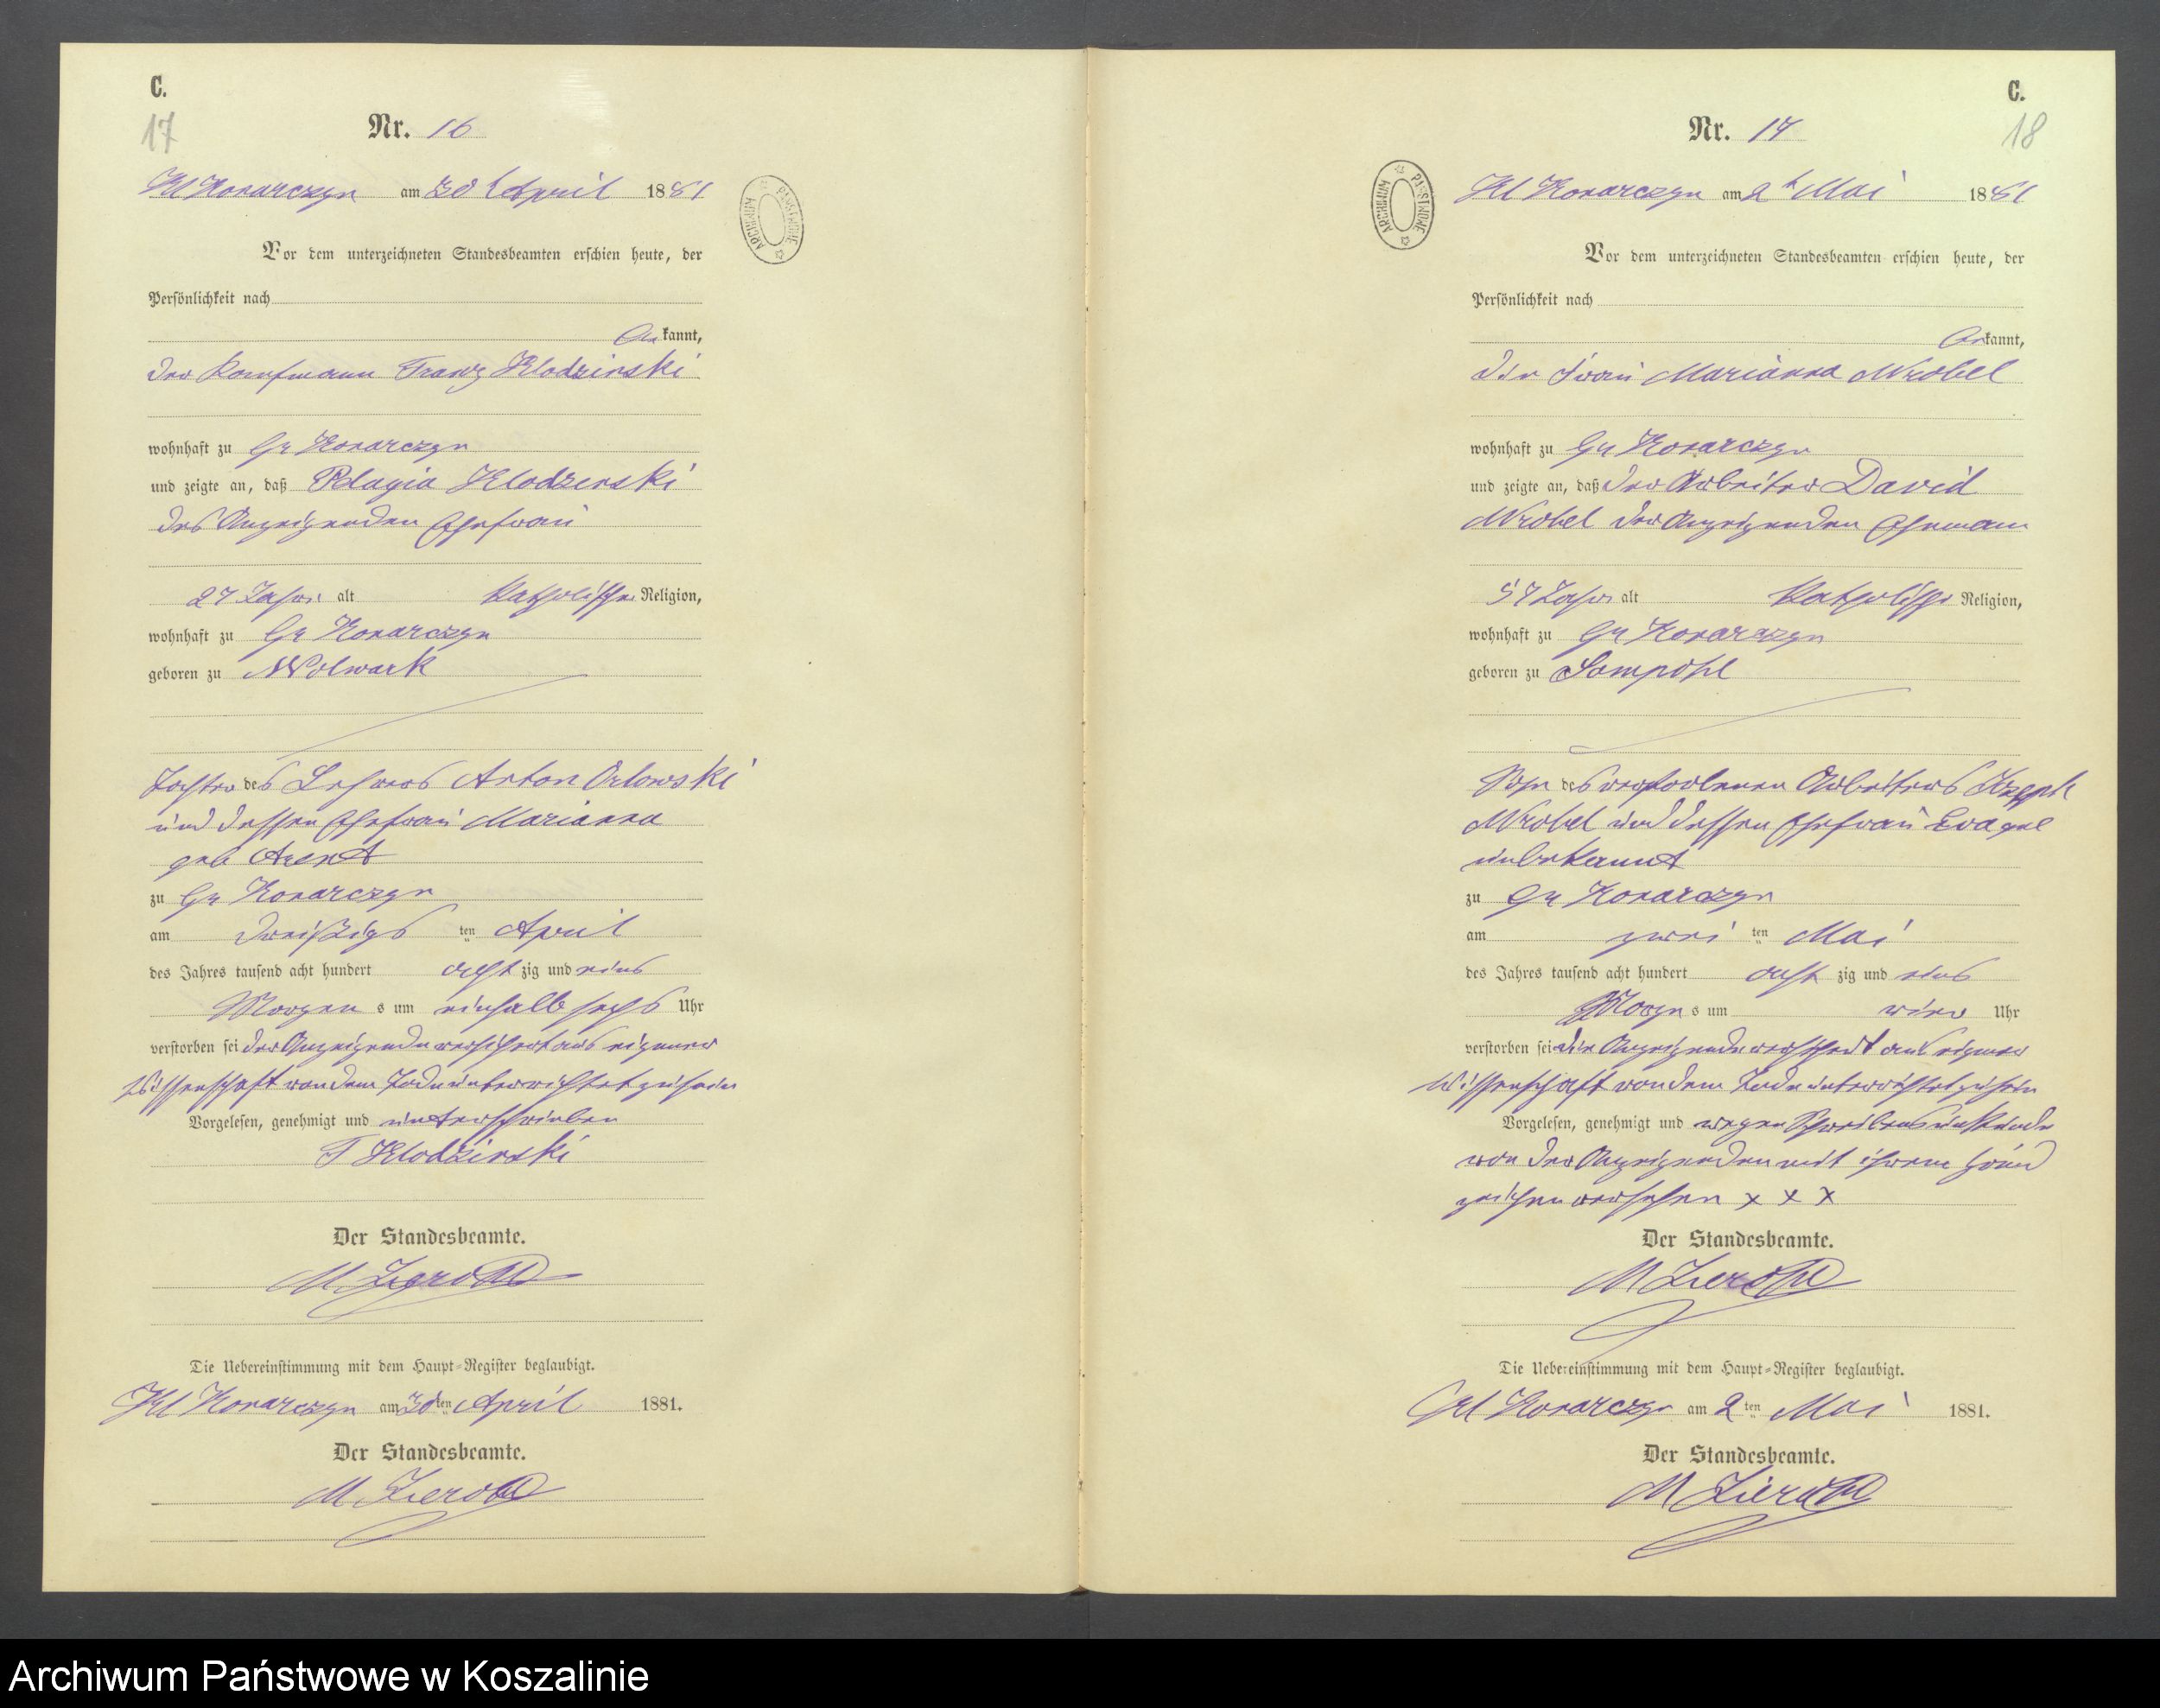 C.
17
Nr. 16
Kl Konarczyn am 30 t April 1881
ARCHIWUM PAŃSTWOWE
Vor dem unterzeichneten Standesbeamten erschien heute, der
Persönlichkeit nach
be kannt,
der Kaufmann Franz Klodzinski
wohnhaft zu Gr Konarczyn
und zeigte an, daß Pelagia Klodzinski
des Anzeigenden Ehefrau
27 Jahre alt Katholischer Religion,
wohnhaft zu Gr Konarczyn
geboren zu Wolwark
Tochter des Lehrers Anton Orlowski
und dessen Ehefrau Marianna
geb Arendt
zu Gr Konarczyn
am dreißigs ten April
des Jahres tausend acht hundert acht zig und eins
Morgen s um einhalb sechs Uhr
verstorben sei der Anzeigende versichert aus eigener
Wissenschaft von dem Tode unterrichtet zu sein
Vorgelesen, genehmigt und unterschrieben
F Klodzinski
Der Standesbeamte.
M
Die Uebereinstimmung mit dem Haupt-Register beglaubigt.
Kl Konarczyn am 30 ten April 1881.
Der Standesbeamte.
M
C.
18
Nr. 17
Kl Konarczyn am 2 t Mai 1881
ARCHIWUM PAŃSTWOWE
Vor dem unterzeichneten Standesbeamten erschien heute, der
Persönlichkeit nach
be kannt,
die Frau Marianna Wrobel
wohnhaft zu Gr Konarczyn
und zeigte an, daß der Arbeiter David
Wrobel der Anzeigenden Ehemann
57 Jahre alt Katholischer Religion,
wohnhaft zu Gr Konarczyn
geboren zu Sompohl
Sohn des verstorbenen Arbeiters Joseph
Wrobel und dessen Ehefrau Eva geb
unbekannt
zu Gr Konarczyn
am zwei ten Mai
des Jahres tausend acht hundert acht zig und eins
Morgen s um vier Uhr
verstorben sei die Anzeigende versichert aus eigener
Wissenschaft von dem Tode unterrichtet zu sein
Vorgelesen, genehmigt und wegen Schreibensunkunde
von der Anzeigenden mit ihrem Hand
zeichen versehen x x x
Der Standesbeamte.
M
Die Uebereinstimmung mit dem Haupt-Register beglaubigt.
Kl Konarczyn am 2 ten Mai 1881.
Der Standesbeamte.
M
Archiwum Państwowe w Koszalinie